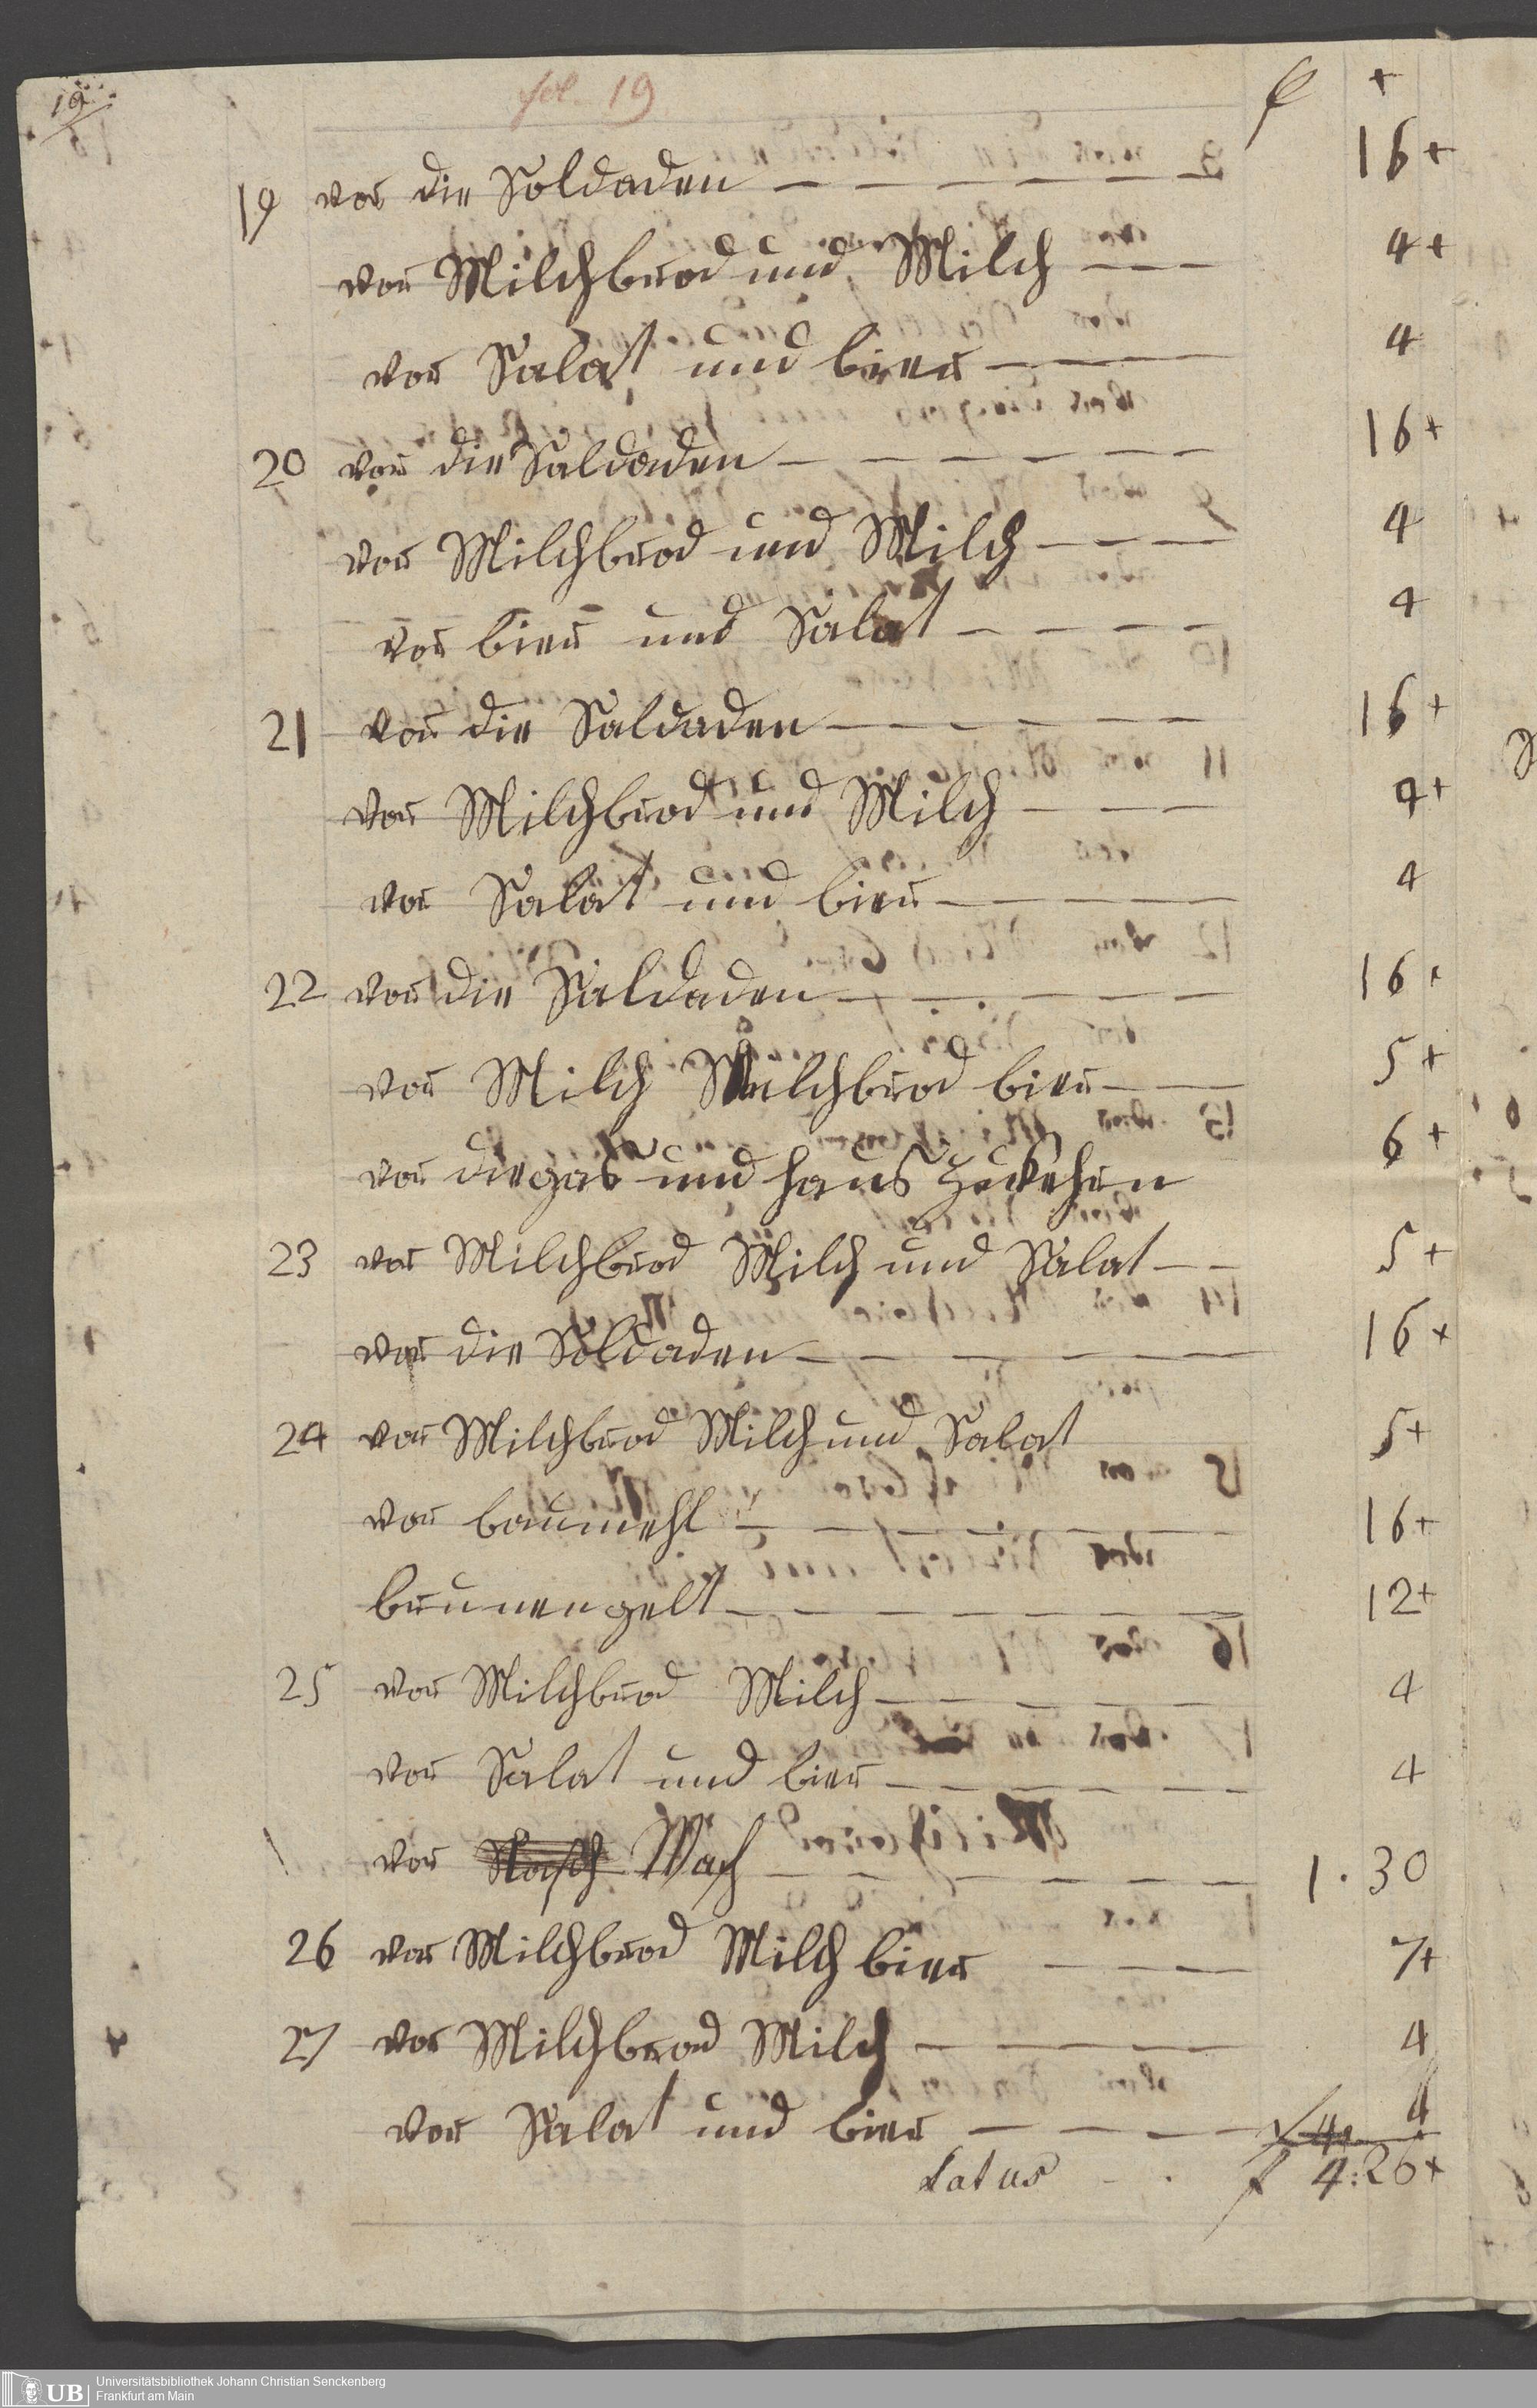 19.
fol. 19
f +
19 vor die Soldaden — — — — — — 16+
vor Milchbrod und Milch — — 4+
vor Salat und bier — — — 4
20 vor die Saldaden — — — — — — 16+
vor Milchbrod und Milch — — — 4
vor bier und Salat — — — — 4
21 vor die Saldaden — — — — — 16+
vor Milchbrod und Milch — — — 4+
vor Salat und bier — — — — 4
22 vor die Saldaden — — — — — 16+
vor Milch Milchbrod bier — — 5+
vor die gas und haus zu kehren 6+
23 vor Milchbrod Milch und Salat — — 5+
vor die Soldaden — — — — — 16+
24 vor Milchbrod Milch und Salat 5+
vor baumehl — — — — — — — 16+
brunengelt — — — — — — — 12+
25 vor Milchbrod Milch — — — — — 4
vor Salat und bier — — — — — 4
vor Wasch — — — — — — 1 . 30
26 vor Milchbrod Milch bier — — — 7+
27 vor Milchbrod Milch — — — — — 4
vor Salat und bier — — — — 4
Latus — . f 4:26+
UB Universitätsbibliothek Johann Christian Senckenberg
Frankfurt am Main